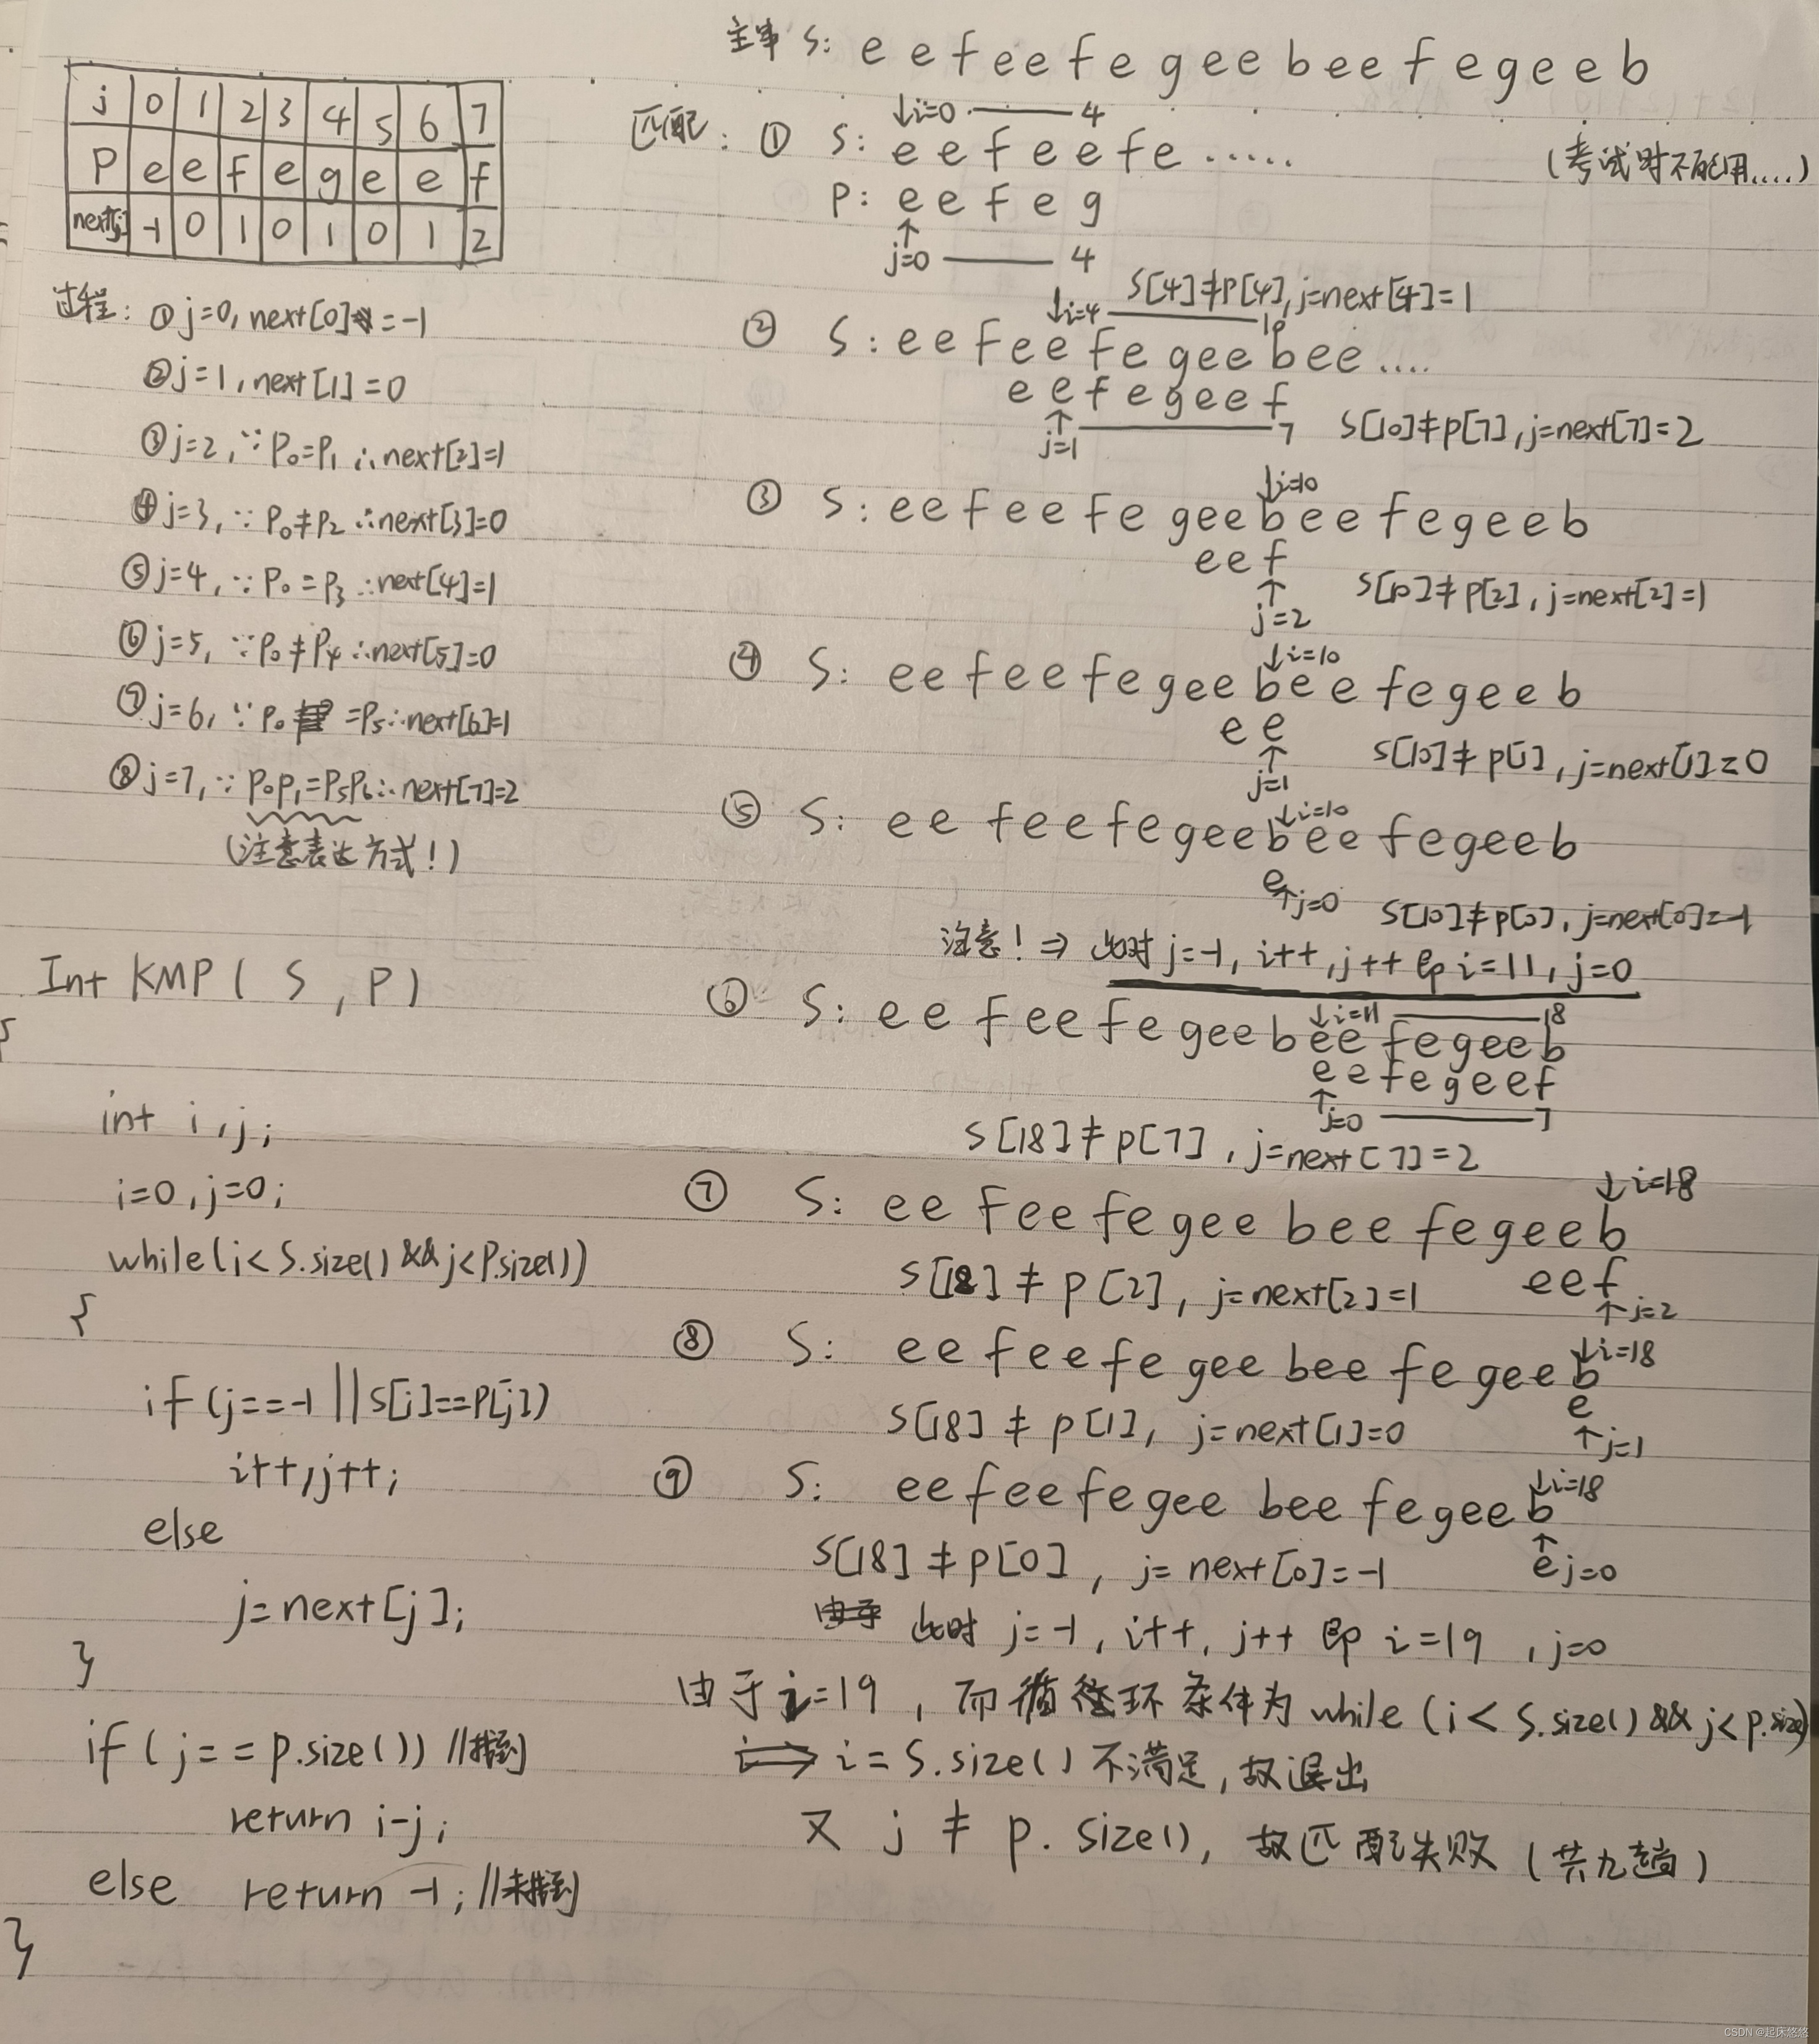 j 0 1 2 3 4 5 6 7
P e e f e g e e f
next[j] -1 0 1 0 1 0 1 2
过程: ① j=0, next[0] = -1
② j=1, next[1]=0
③ j=2, ∵ P₀=P₁ ∴ next[2]=1
④ j=3, ∵ P₀≠P₂ ∴ next[3]=0
⑤ j=4, ∵ P₀=P₃ ∴ next[4]=1
⑥ j=5, ∵ P₀≠P₄ ∴ next[5]=0
⑦ j=6, ∵ P₀=P₅ ∴ next[6]=1
⑧ j=7, ∵ P₀P₁=P₅P₆ ∴ next[7]=2
(注意表达方式!)
Int KMP( S, P)
{
int i,j;
i=0,j=0;
while(i<S.size()&&j<P.size())
{
if(j==-1||S[i]==P[j])
i++,j++;
else
j=next[j];
}
if(j==p.size()) //找到
return i-j;
else return -1; //未找到
}
主串 S: e e f e e f e g e e b e e f e g e e b
匹配: ① ↓i=0 —— 4
S: e e f e e f e ······
(考试时不能用....)
P: e e f e g
↑
j=0 —— 4
S[4]≠P[4], j=next[4]=1
② ↓i=4 —— 10
S: e e f e e f e g e e b e e ....
e e f e g e e f
↑
j=1 —— 7 S[10]≠P[7], j=next[7]=2
③ ↓i=10
S: e e f e e f e g e e b e e f e g e e b
e e f
↑
j=2 S[10]≠P[2], j=next[2]=1
④ ↓i=10
S: e e f e e f e g e e b e e f e g e e b
e e
↑
j=1 S[10]≠P[1], j=next[1]=0
⑤ ↓i=10
S: e e f e e f e g e e b e e f e g e e b
e
↑j=0 S[10]≠P[0], j=next[0]=-1
注意! ⇒ 此时 j=-1, i++, j++ 即 i=11, j=0
⑥ ↓i=11 —— 18
S: e e f e e f e g e e b e e f e g e e b
e e f e g e e f
↑
j=0 —— 7
S[18]≠P[7], j=next[7]=2
⑦ ↓i=18
S: e e f e e f e g e e b e e f e g e e b
e e f
↑j=2
S[18]≠P[2], j=next[2]=1
⑧ ↓i=18
S: e e f e e f e g e e b e e f e g e e b
e
↑j=1
S[18]≠P[1], j=next[1]=0
⑨ ↓i=18
S: e e f e e f e g e e b e e f e g e e b
↑
e j=0
S[18]≠P[0], j=next[0]=-1
此时 j=-1, i++, j++ 即 i=19, j=0
由于i=19, 而循环条件为 while(i<S.size()&&j<p.size)
⇒ i=S.size()不满足,故退出
又 j≠p.size(), 故匹配失败 (共九趟)
CSDN @起床悠悠